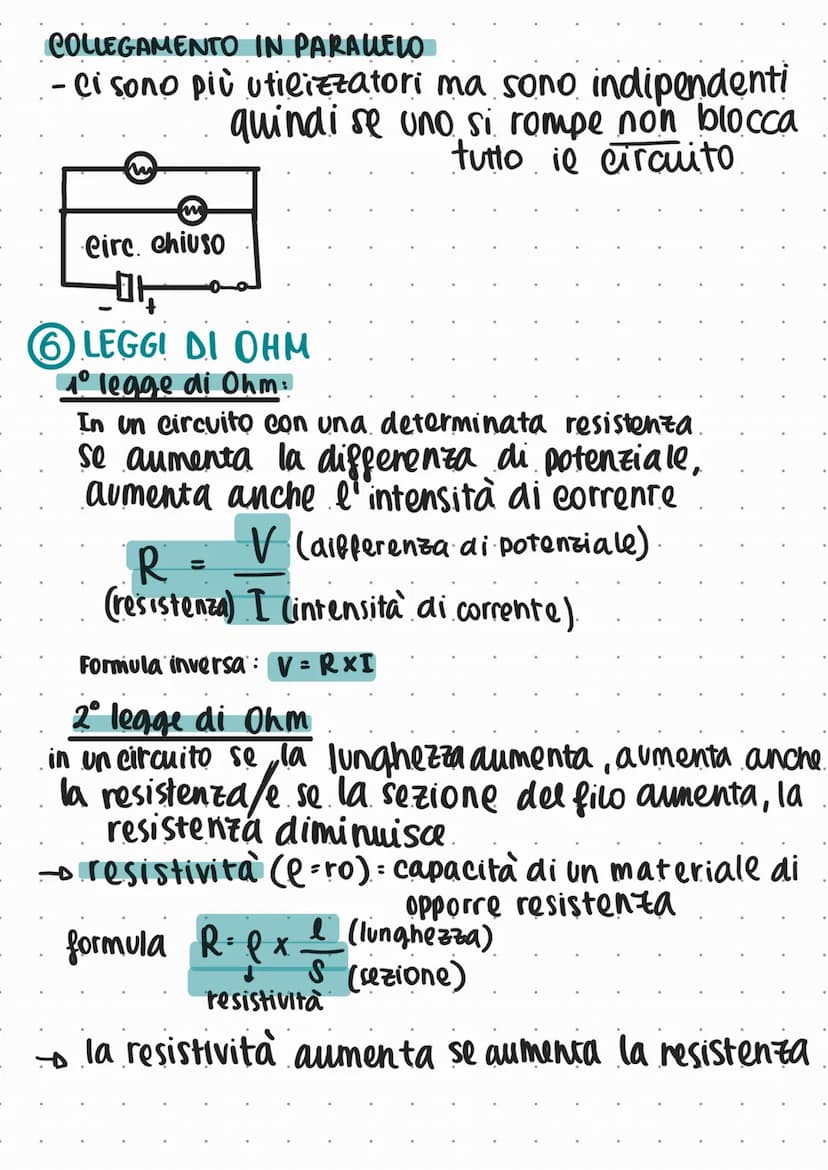 COLLEGAMENTO IN PARALLELO
- ci sono più utilizzatori ma sono indipendenti
quindi se uno si rompe non blocca
tutto il circuito
circ. chiuso
- +
6 LEGGI DI OHM
1° legge di Ohm:
In un circuito con una determinata resistenza
se aumenta la differenza di potenziale,
aumenta anche l'intensità di corrente
R = V (differenza di potenziale)
(resistenza) I (intensità di corrente)
Formula inversa: V = R x I
2° legge di Ohm
in un circuito se la lunghezza aumenta, aumenta anche
la resistenza/e se la sezione del filo aumenta, la
resistenza diminuisce
→ resistività (ρ=ro) = capacità di un materiale di
opporre resistenza
formula R = ρ x l (lunghezza)
S (sezione)
↓
resistività
→ la resistività aumenta se aumenta la resistenza